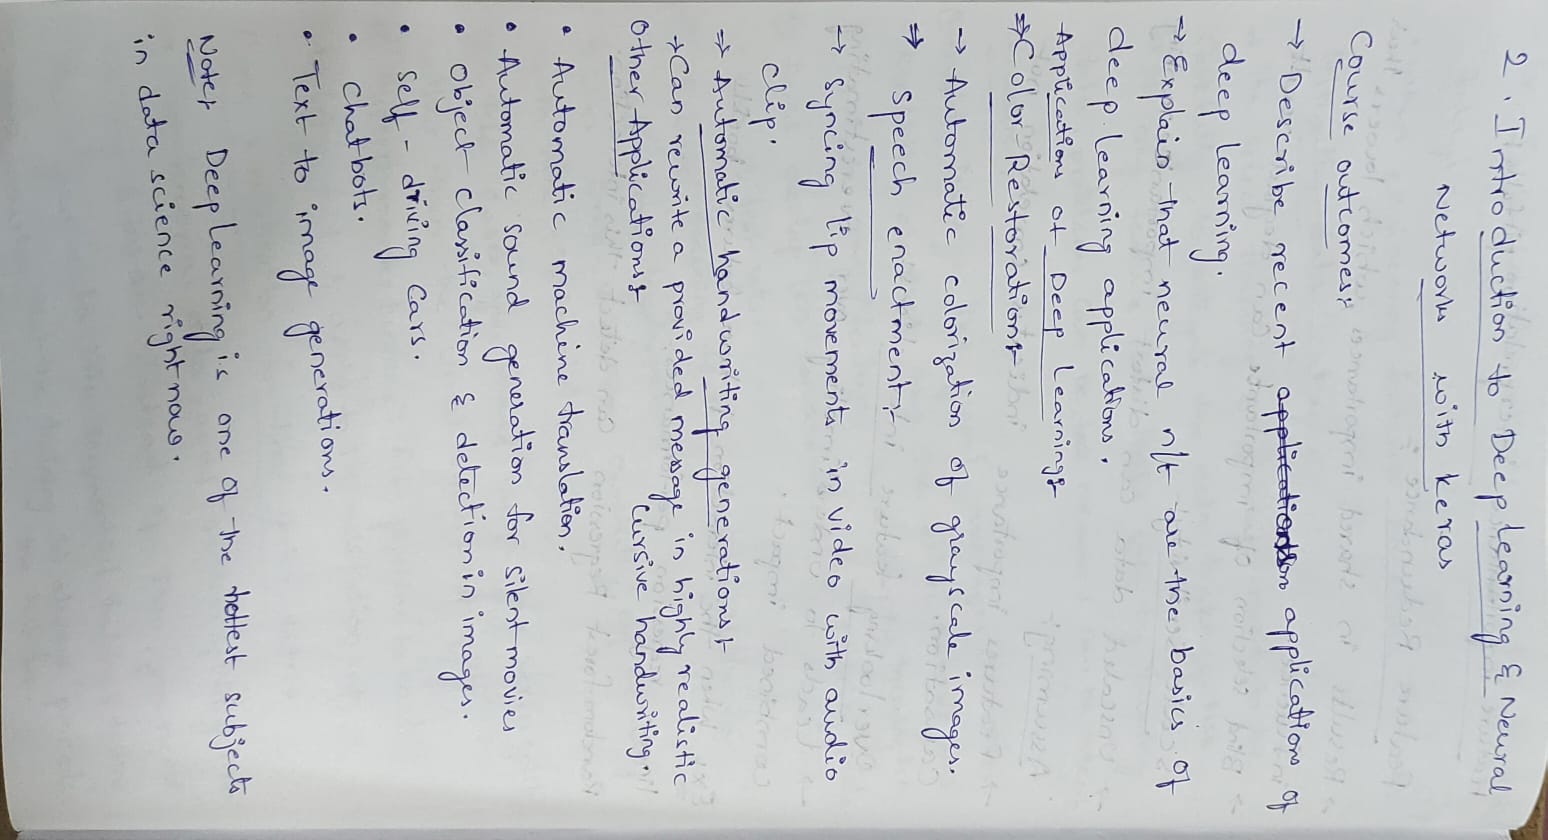 2. Introduction to Deep Learning & Neural
Networks with keras
Course outcomes:-
→ Describe recent applications of
deep learning.
→ Explain that neural n/t are the basics of
deep learning applications.
Applications of Deep Learning:-
⇒ Color Restoration:-
→ Automatic colorization of grayscale images.
⇒ Speech enactment:-
→ Syncing lip movements in video with audio
clip.
⇒ Automatic handwriting generations:-
→ Can rewrite a provided message in highly realistic
cursive handwriting.
Other Applications:-
• Automatic machine translation.
• Automatic sound generation for silent movies
• Object classification & detection in images.
• Self - driving Cars.
• Chatbots.
• Text to image generations.
Note:- Deep Learning is one of the hottest subjects
in data science right now.